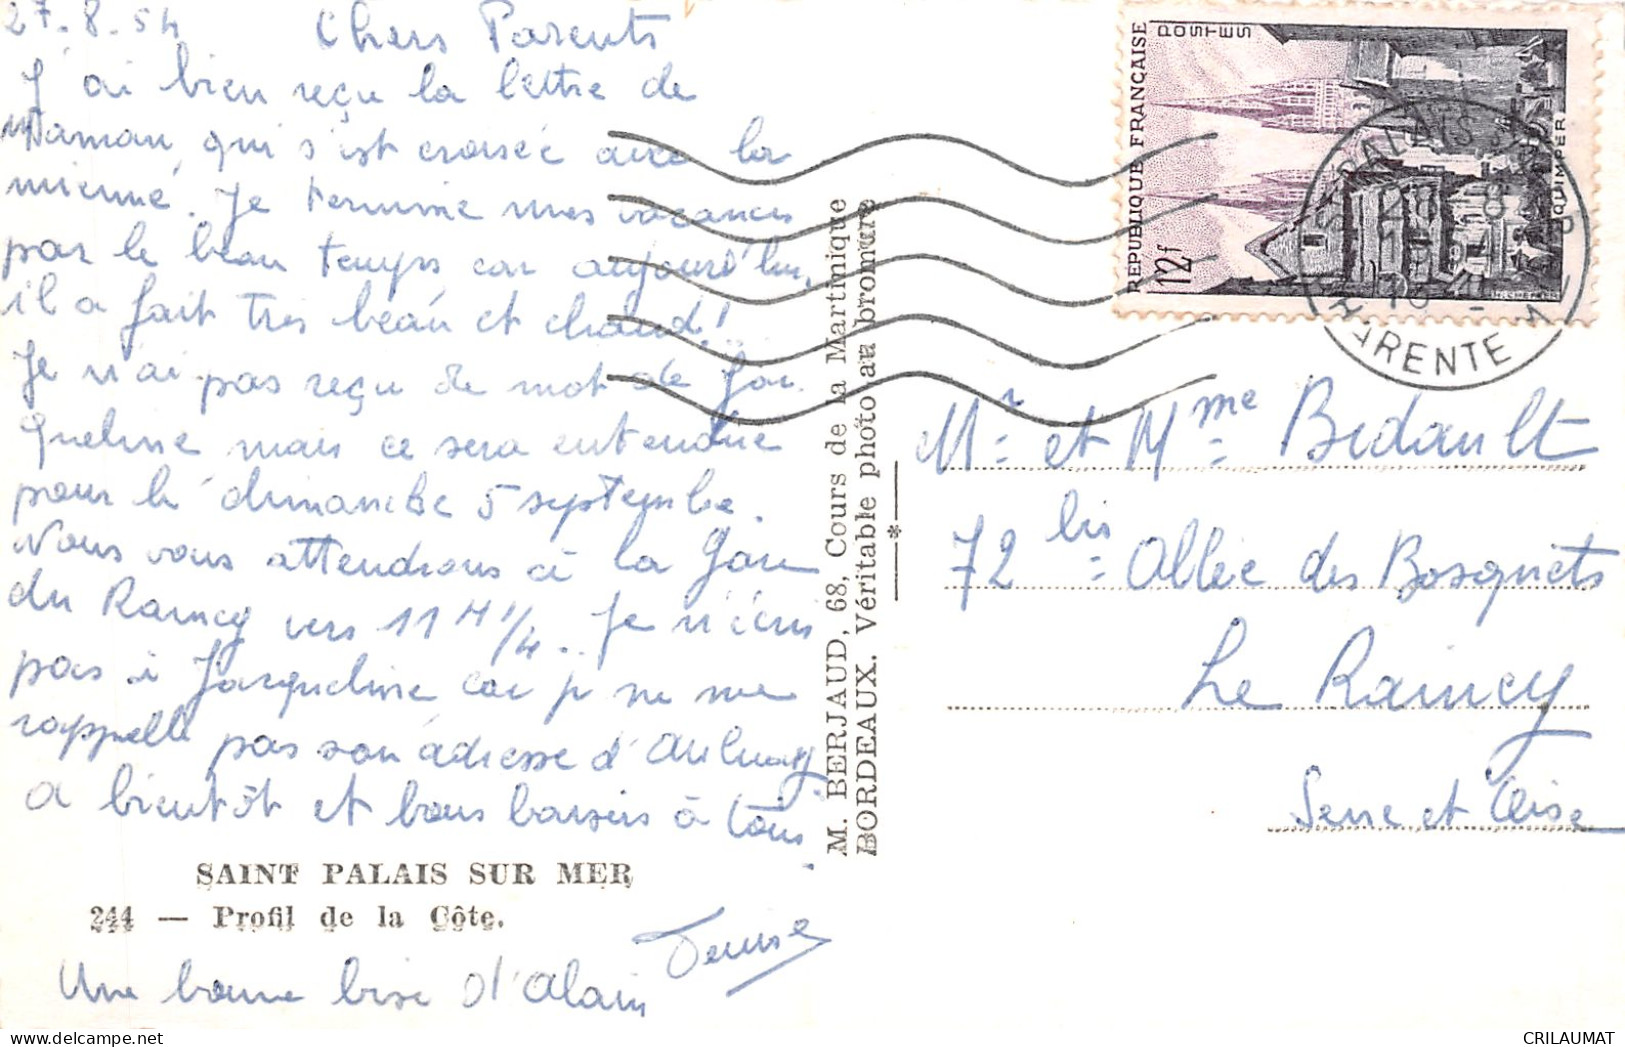 27.8.54 Chers Parents
J'ai bien reçu la lettre de
Maman, qui s'est croisée avec la
mienne. Je termine mes vacances
par le beau temps car aujourd'hui,
il a fait très beau et chaud!
Je n'ai pas reçu de mot de Jac
queline mais ce sera entendue
pour le dimanche 5 septembre.
Nous vous attendrons à la gare
du Raincy vers 11 H 1/4. Je n'écris
pas à Jacqueline car je ne me
rappelle pas son adresse d'Aulnay
a bientôt et bons baisers à tous
SAINT PALAIS SUR MER
244 — Profil de la Côte.
Denise
Une bonne bise d'Alain
M. BERJAUD, 68, Cours de la Martinique
BORDEAUX. Véritable photo au bromure
REPUBLIQUE FRANÇAISE
POSTES
12f
QUIMPER
PALAIS
CHARENTE
Mr et Mme Bidault
72 bis Allée des Bosquets
Le Raincy
Seine et Oise
CRILAUMAT